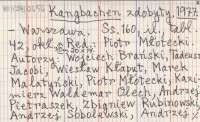 Kangbachen zdobyty. 1977.
- Warszawa. Ss. 160, il., tabl.
42, okł. Red. Piotr Młotecki.
Autorzy: Wojciech Brański, Tadeusz
Jacobi, Wiesław Kłaput, Marek
Malatyński, Piotr Młotecki, Kazi-
mierz Waldemar Olech, Andrzej
Pietraszek, Zbigniew Rubinowski,
Andrzej Sobolewski, Andrzej